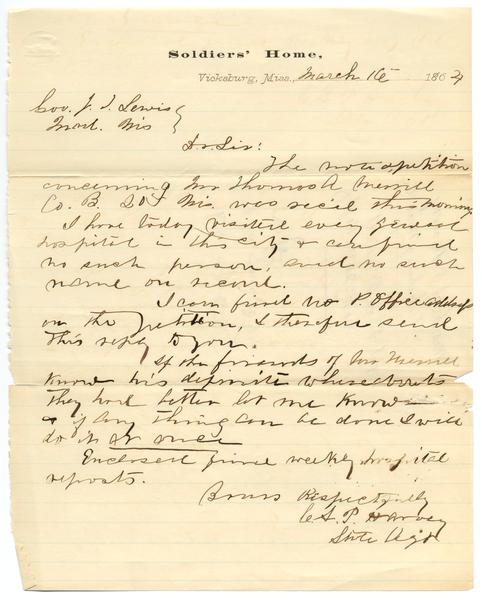 Soldiers' Home,
Vicksburg, Miss., March 16 1864
Gov. J. T. Lewis
Mad. Wis
Dr. Sir:
The petition
concerning Mr Thomas A Merrill
Co. B 20th Wis. was rec'd this morning
I have today visited every general
hospital in this city & can find
no such person, and no such
name on record.
I can find no P. Office address
on the petition, & therefore send
this reply to you.
If the friends of Mr Merrill
know his definite whereabouts
they had better let me know
if any thing can be done I will
do it at once
Enclosed find weekly hospital
reports.
Yours Respectfully
C. A. P. Harvey
State Agt